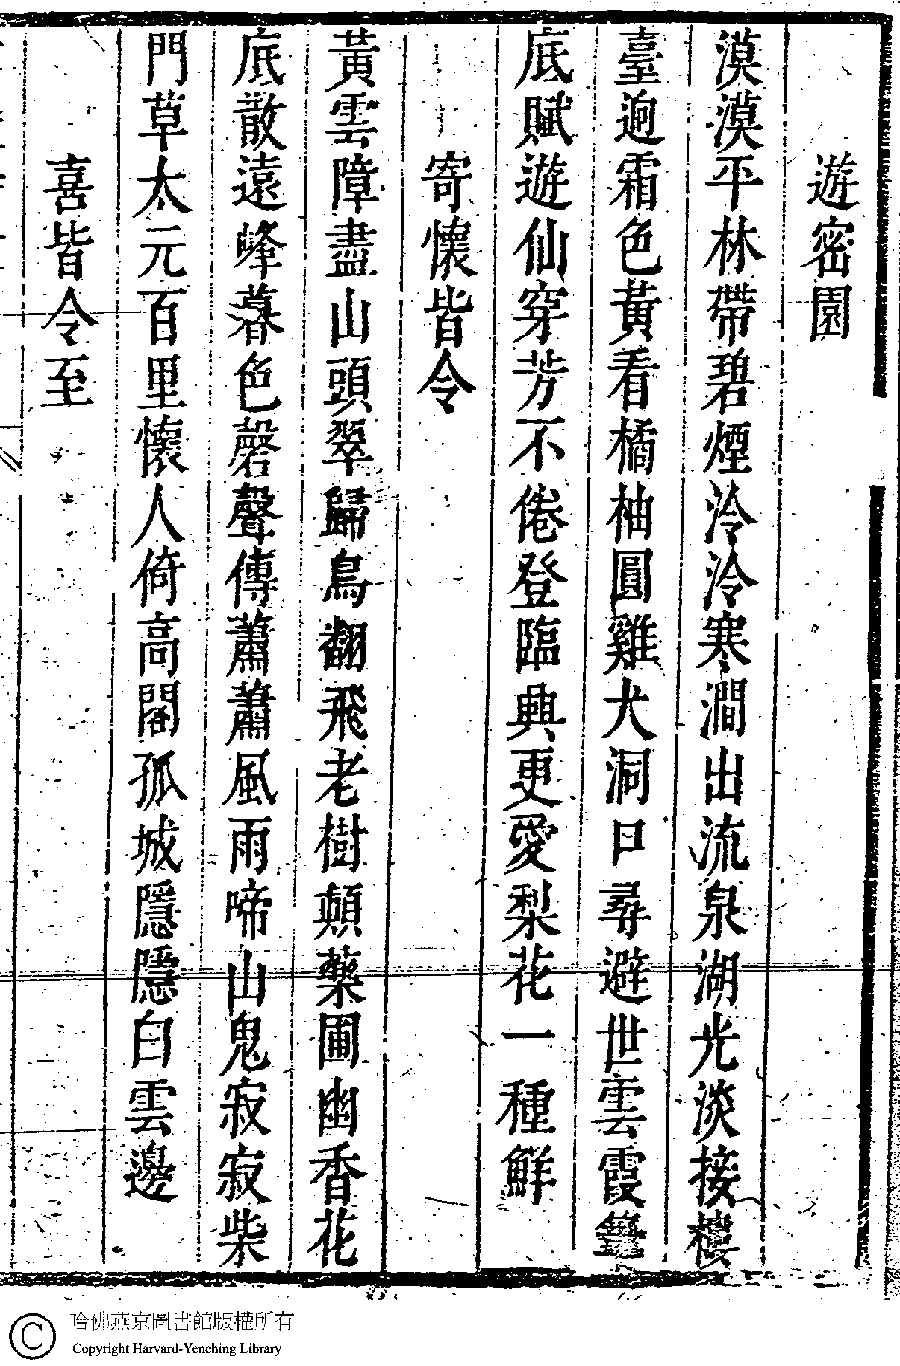 遊密園
漠漠平林帶碧煙泠泠寒澗出流泉湖光淡接樓
臺逈霜色黃看橘柚圓雞犬洞口尋避世雲霞
底賦遊仙穿芳不倦登臨興更愛梨花一種鮮
寄懷皆令
黃雲障盡山頭翠歸鳥翻飛老樹顛藥圃幽香花
底散遠峰暮色磬聲傳蕭蕭風雨啼山鬼寂寂柴
門草太元百里懷人倚高閣孤城隱隱白雲邊
喜皆令至
哈佛燕京圖書館版權所有
Copyright Harvard-Yenching Library